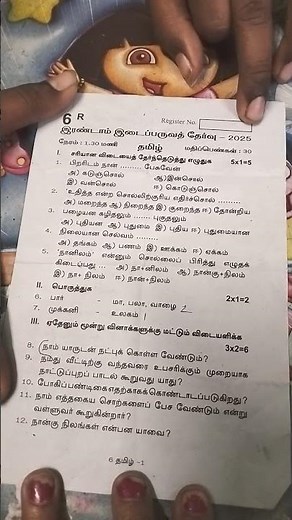 6 R
Register No.
இரண்டாம் இடைப்பருவத் தேர்வு – 2025
நேரம் : 1.30 மணி தமிழ் மதிப்பெண்கள் : 30
I. சரியான விடையைத் தேர்ந்தெடுத்து எழுதுக 5x1=5
1. பிறரிடம் நான் ......... பேசுவேன்
அ) கடுஞ்சொல் ஆ)இன்சொல்
இ) வன்சொல் ஈ) கொடுஞ்சொல்
2. 'உதித்த என்ற சொல்லிற்குரிய எதிர்ச்சொல் .........
அ) மறைந்த ஆ) நிறைந்த இ) குறைந்த ஈ) தோன்றிய
3. பழையன கழிதலும் ......... புகுதலும்
அ) புதியன ஆ) புதுமை இ) புதிய ஈ) புதுமையான
4. நிலையான செல்வம் .........
அ) தங்கம் ஆ) பணம் இ) ஊக்கம் ஈ) ஏக்கம்
5. 'நானிலம்' என்னும் சொல்லைப் பிரித்து எழுதக்
கிடைப்பது ... அ) நா+னிலம் ஆ) நான்கு+நிலம்
இ) நா+ நிலம் ஈ) நான்+நிலம்
II. பொருத்துக 2x1=2
6. பார் - மா, பலா, வாழை 2
7. முக்கனி - உலகம் 1
III. ஏதேனும் மூன்று வினாக்களுக்கு மட்டும் விடையளிக்க
3x2=6
8. நாம் யாருடன் நட்புக் கொள்ள வேண்டும்?
9. நமது வீட்டிற்கு வந்தவரை உபசரிக்கும் முறையாக
நாட்டுப்புறப் பாடல் கூறுவது யாது?
10. போகிப்பண்டிகைஎதற்காகக்கொண்டாடப்படுகிறது?
11. நாம் எத்தகைய சொற்களைப் பேச வேண்டும் என்று
வள்ளுவர் கூறுகின்றார்?
12. நான்கு நிலங்கள் என்பன யாவை?
6 தமிழ் -1